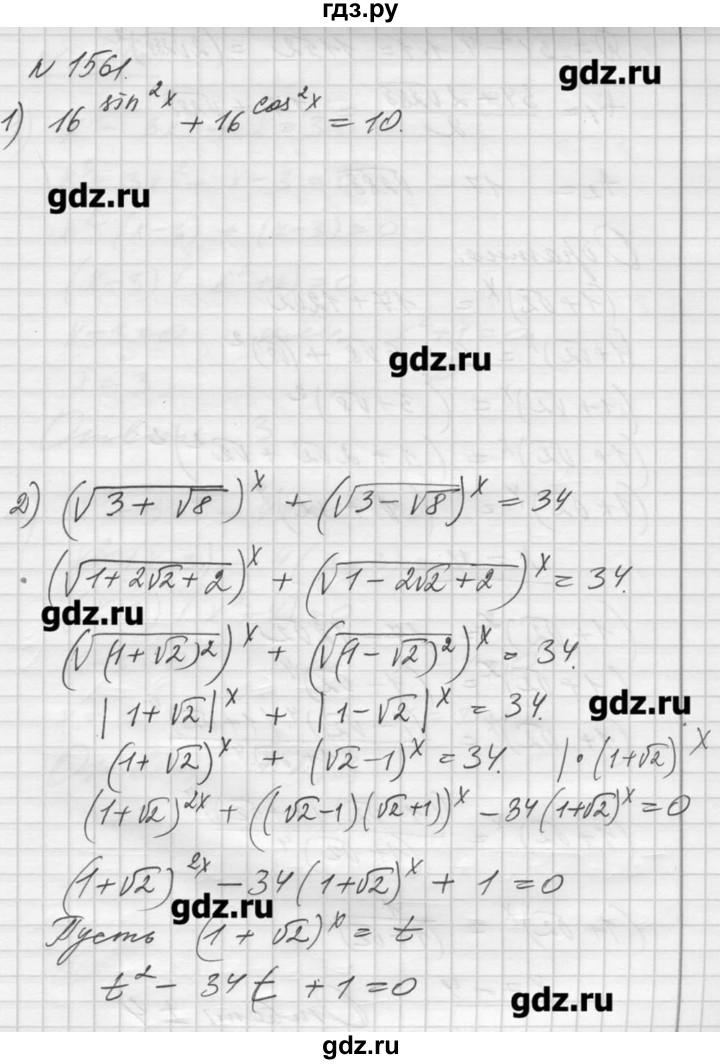 гдз.ру
N 1561.
gdz.ru
1) 16^{sin^2x} + 16^{cos^2x} = 10.
gdz.ru
gdz.ru
2) (√(3+√8))^x + (√(3-√8))^x = 34
(√(1+2√2+2))^x + (√(1-2√2+2))^x = 34.
gdz.ru
(√((1+√2)^2))^x + (√((1-√2)^2))^x = 34.
|1+√2|^x + |1-√2|^x = 34.
gdz.ru
(1+√2)^x + (√2-1)^x = 34. |·(1+√2)^x
(1+√2)^{2x} + ((√2-1)(√2+1))^x - 34(1+√2)^x = 0
(1+√2)^{2x} - 34(1+√2)^x + 1 = 0
gdz.ru
Пусть (1+√2)^x = t
t^2 - 34t + 1 = 0
gdz.ru
gdz.ru